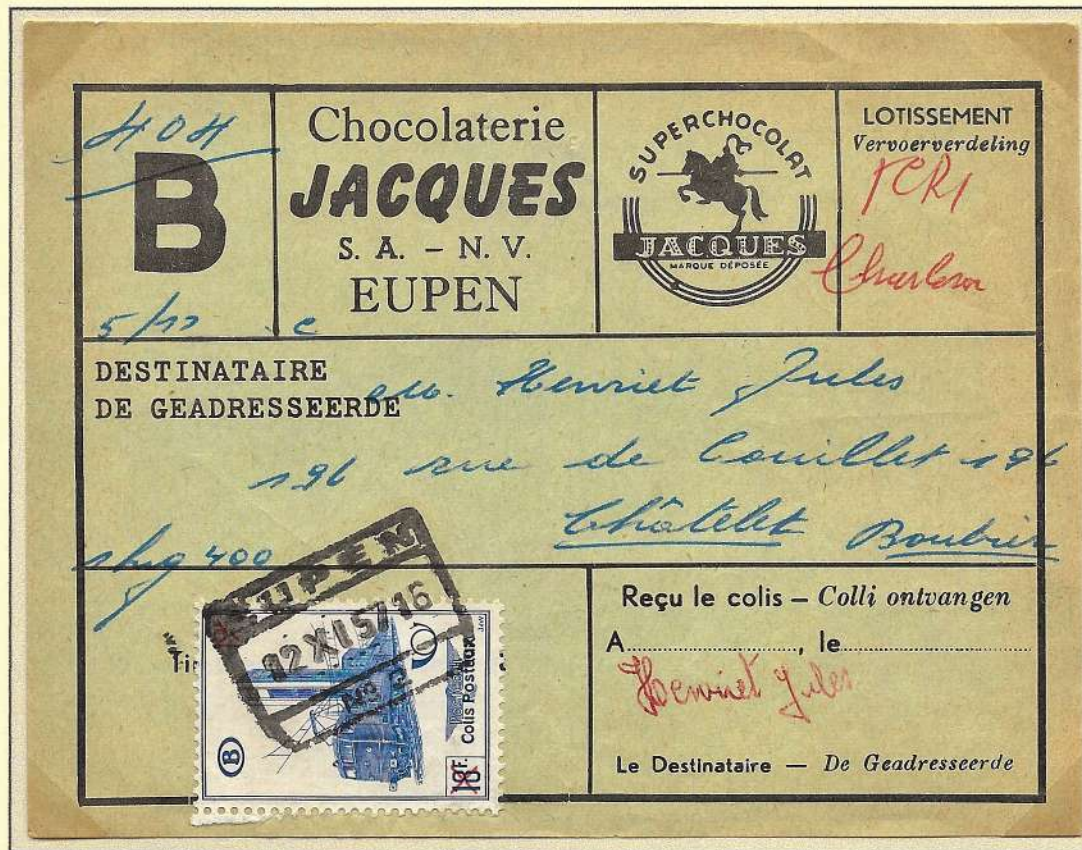 404
B
5/11 c
Chocolaterie
JACQUES
S. A. – N. V.
EUPEN
SUPERCHOCOLAT
JACQUES
MARQUE DÉPOSÉE
LOTISSEMENT
Vervoerverdeling
DESTINATAIRE
DE GEADRESSEERDE
M. Henriet Jules
196 rue de Couillet 196
Châtelet Boubier
1kg 400
EUPEN
12 XI 57 16
B
Colis Postaux
18F.
Reçu le colis – Colli ontvangen
A, le
Henriet Jules
Le Destinataire — De Geadresseerde